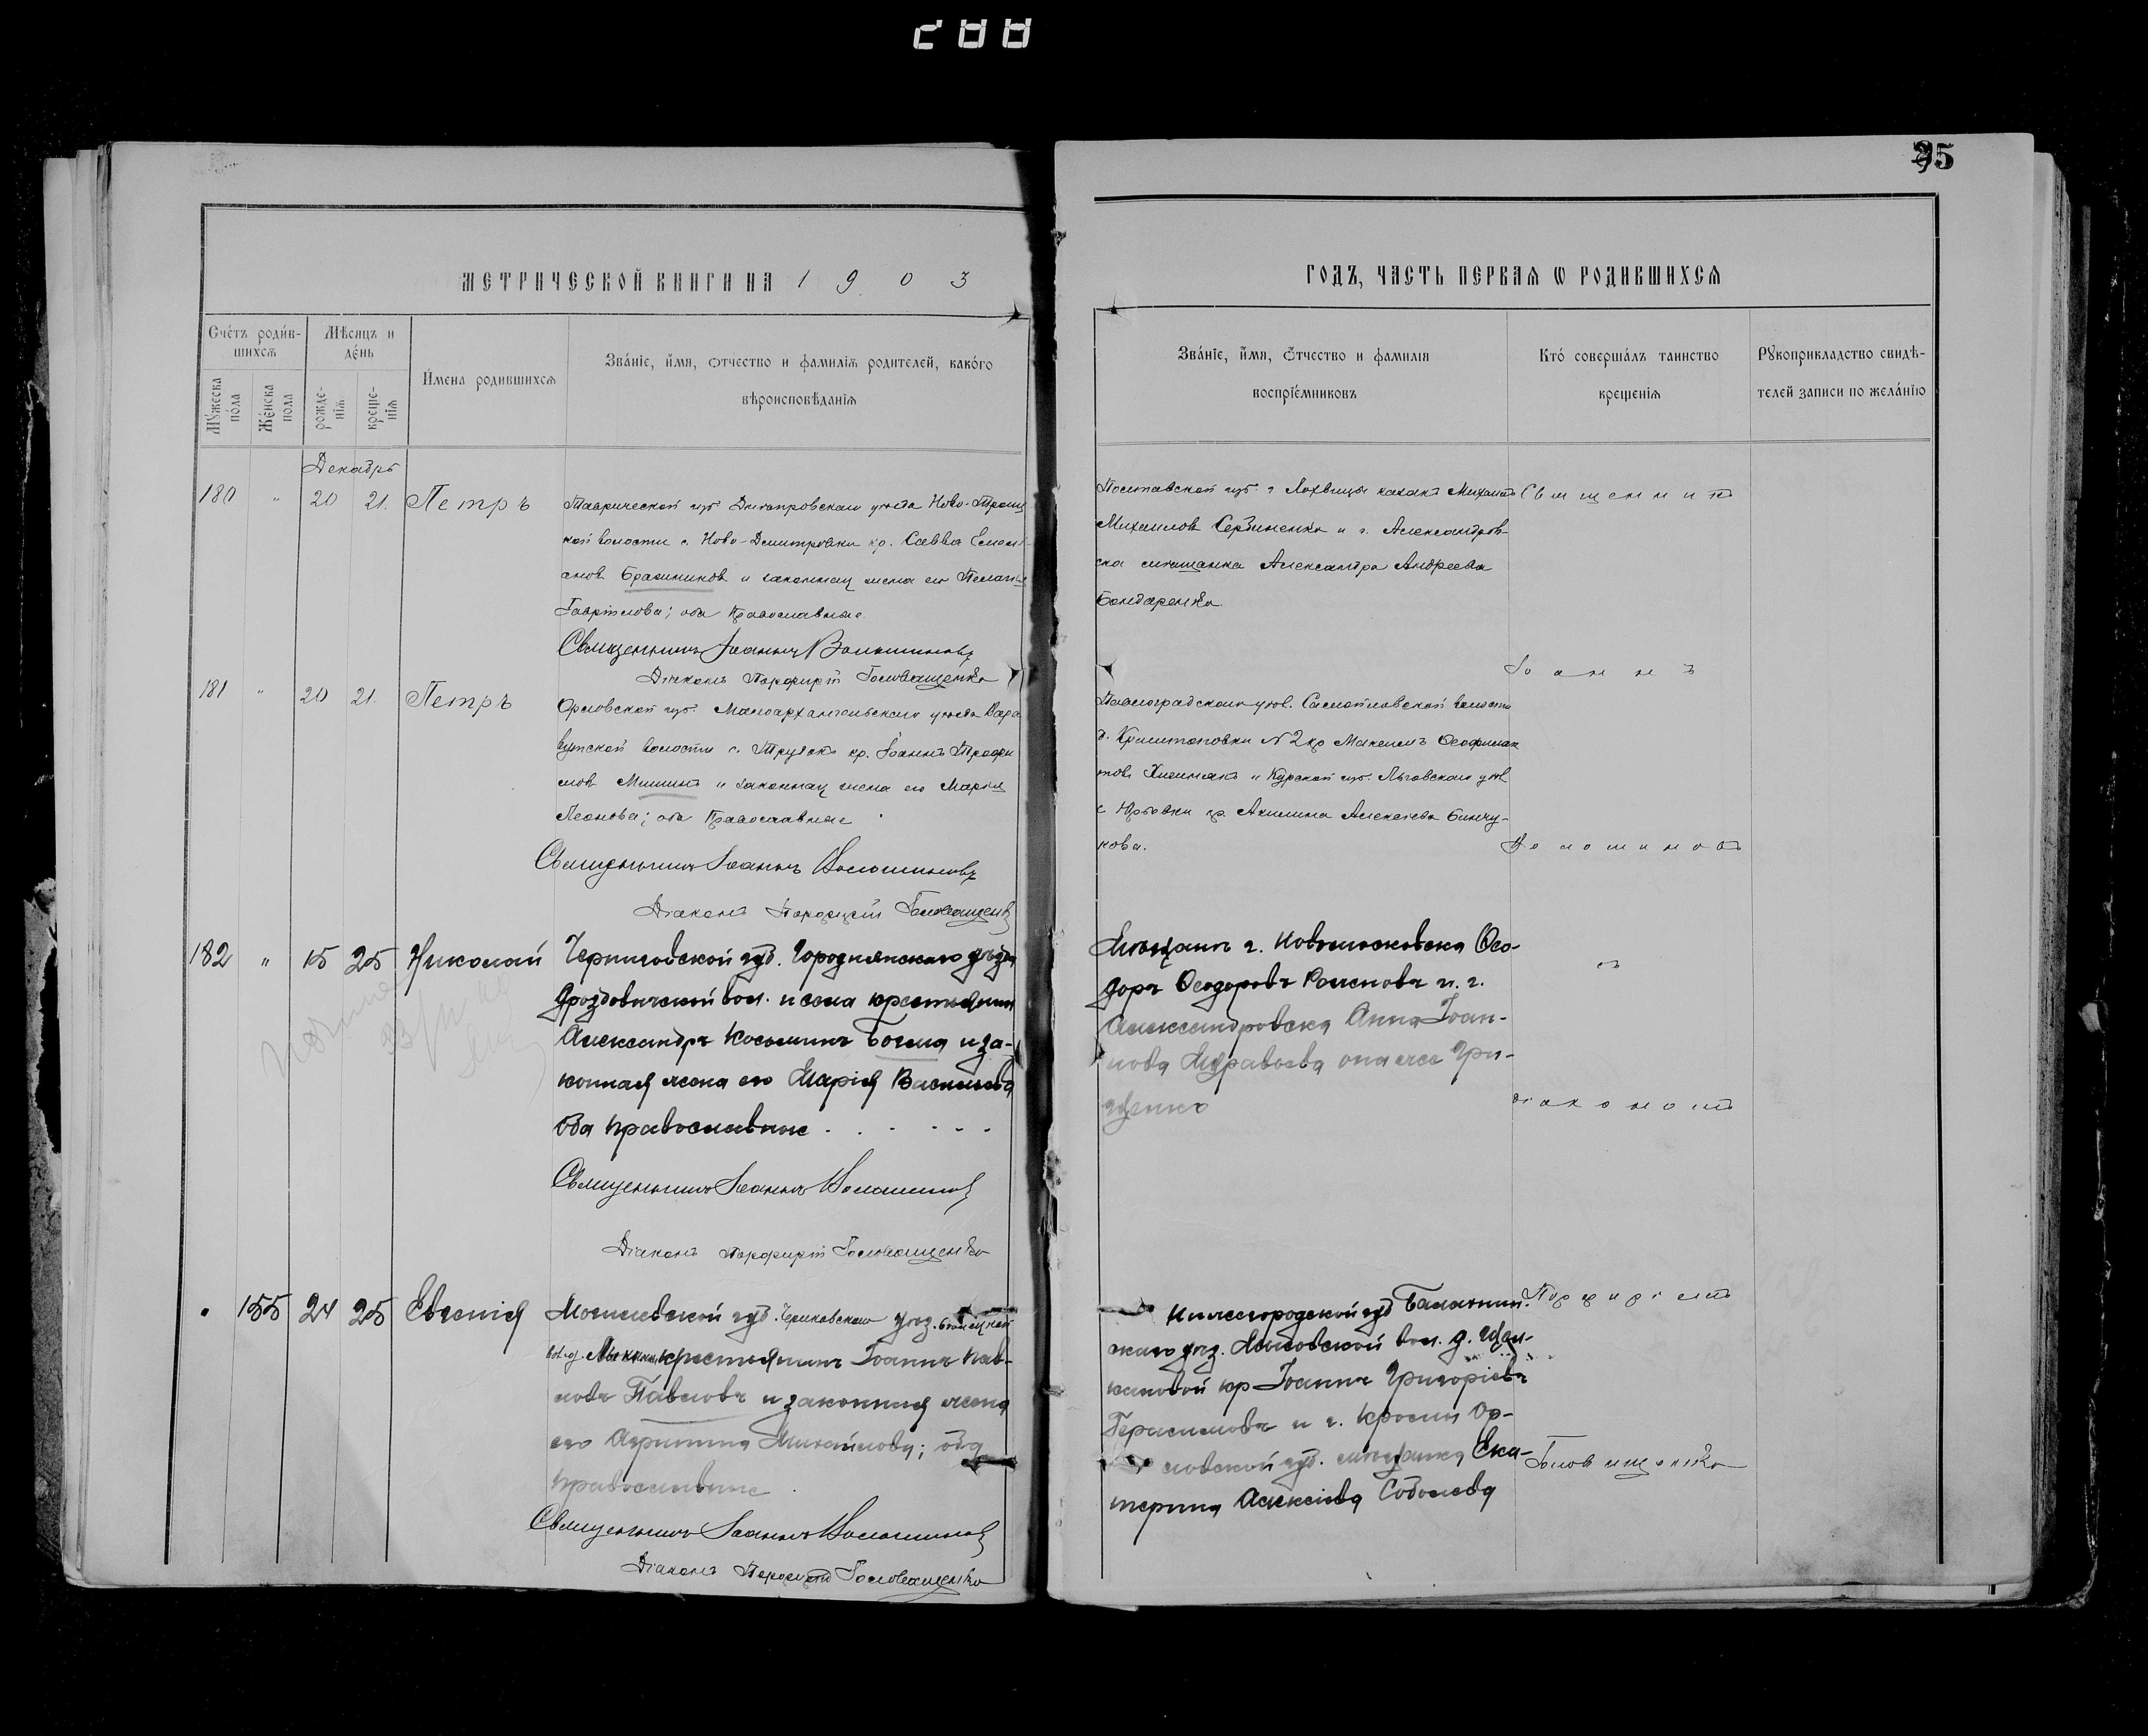 288
95
МЕТРИЧЕСКОЙ КНИГИ НА 1903
ГОДЪ, ЧАСТЬ ПЕРВАѦ Ѡ РОДИВШИХСѦ
Счётъ родив-
шихсѧ
Мѣсяцъ и
день
Мужеска
пола
Женска
пола
рожде-
нїѧ
креще-
нїѧ
Имена родившихсѧ
Званїе, имя, отчество и фамилїѧ родителей, какого
вѣроисповѣданїѧ
Званїе, имя, отчество и фамилїя
воспрїемниковъ
Кто совершалъ таинство
крещенїѧ
Рукоприкладство свидѣ-
телей записи по желанїю
Декабрь
180 " 20 21. Петръ
Таврической губ Днѣпровскаго уѣзда Ново-Троиц
кой волости с. Ново-Дмитровки кр. Савва
Брагиниковъ и законная жена его Пелагія
Гаврілова; оба Православные
Священникъ Іоаннъ Волошиновъ
Діаконъ Порфирій Головащенко
Полтавской губ. г Лохвицы казакъ Михаилъ
Михаиловъ Сердиненко и г. Александров-
ска мѣщанка Александра Андреева
Бондаренко.
Священникъ
Іоаннъ
181 " 20 21. Петръ
Орловской губ. Малоархангельскаго уѣзда
волости с. кр. Іоаннъ Трофи
мовъ Мишинъ и законная жена его Марія
Леонова; оба Православные
Священникъ Іоаннъ Волошиновъ
Діаконъ Порфирій Головащенко
Павлоградскаго уѣз. Самойловской волости
д. Криштоповки № 2 кр Максимъ Ѳеофилак
товъ и Курской губ. Льговскаго уѣз
с Юрьевки кр. Акилина Алексѣева Бинчу-
кова.
Волошиновъ
182 " 15 25 Николай
Черниговской губ. Городнянскаго уѣзда
Дроздовичской вол. и села крестьянинъ
Александръ Косьминъ Богма и за-
конная жена его Марія Васильева
оба православные
Священникъ Іоаннъ Волошиновъ
Діаконъ Порфирій Головащенко
Мѣщанинъ г. Новомосковска Ѳео-
доръ Ѳеодоровъ и г.
Александровска Анна Іоан-
нова Муравьева она же Гри-
щенко
съ
діакономъ
" 155 24 25 Евгенія
Могилевской губ. Чериковскаго уѣз.
вол. д. крестьянинъ Іоаннъ Пав-
ловъ Павловъ и законная жена
его Агрипина Михайлова; оба
православные
Священникъ Іоаннъ Волошиновъ
Діаконъ Порфирій Головащенко
Нижегородской губ Балахнин-
скаго уѣз. вол. д.
кр Іоаннъ Григоріевъ
Герасимовъ и г. Кромы Ор-
ловской губ. мѣщанка Ека-
терина Алексіева Соболева
Порфиріемъ
Головащенко